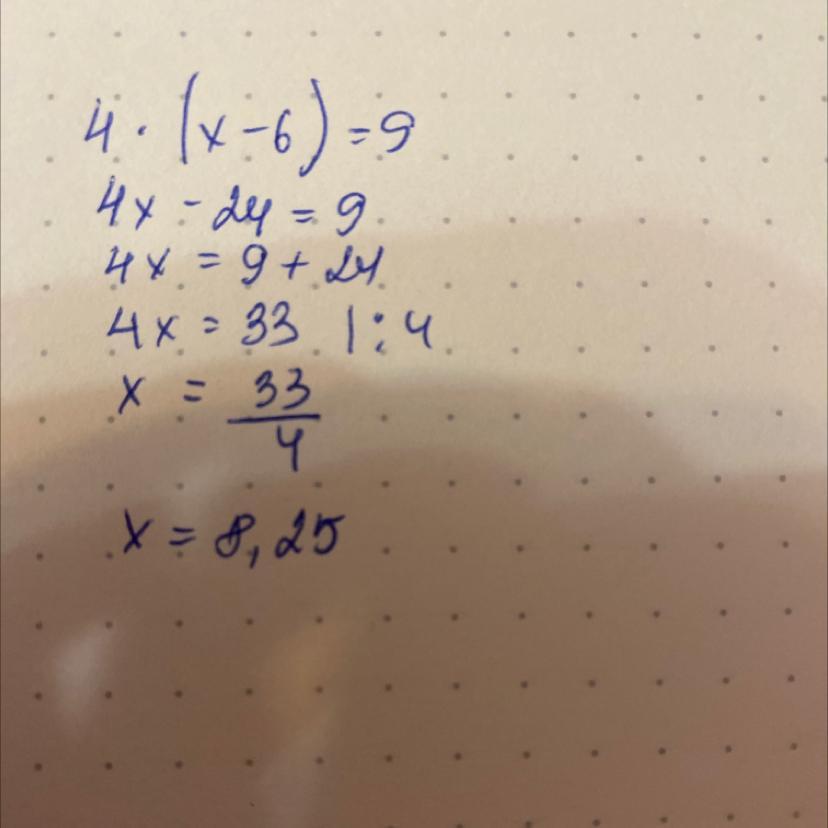 4 · (x - 6) = 9
4x - 24 = 9
4x = 9 + 24
4x = 33 | : 4
x = 33/4
x = 8,25